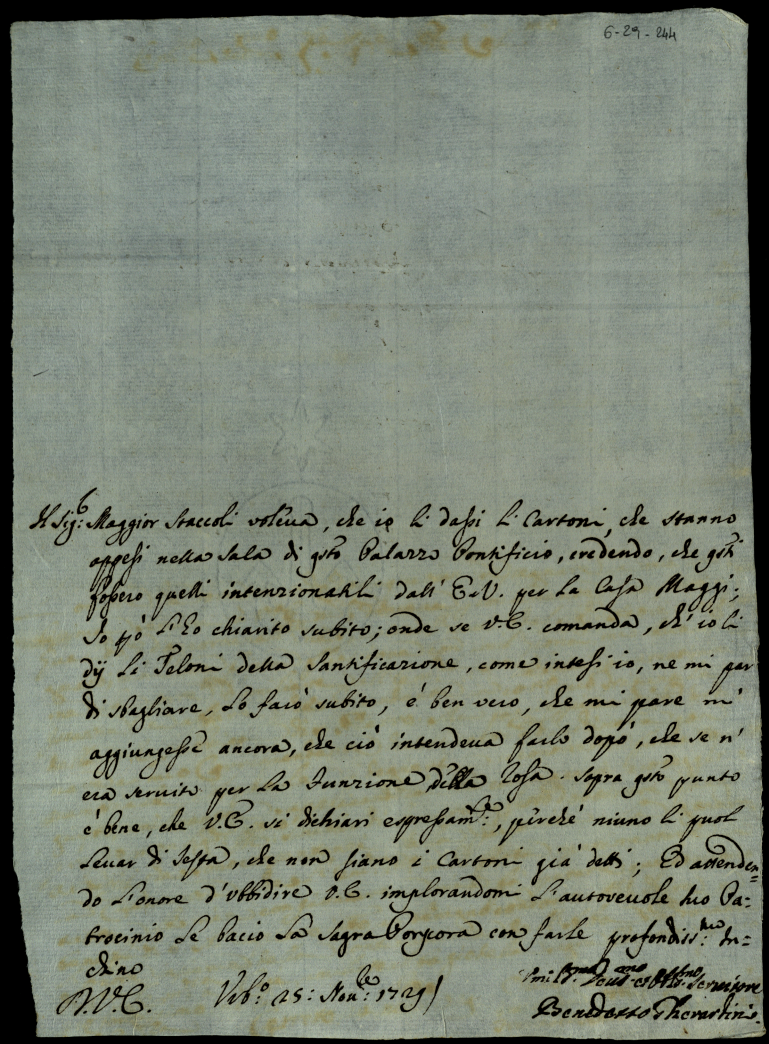 6-29-244
Il Sig.r Maggior Staccoli voleva, che io li dassi li Cartoni, che stanno
appesi nella Sala di gsto Palazzo Pontificio, credendo, che gsti
fossero quelli intenzionatili dall' E.V. per la Casa Maggi;
Io pò l'ho chiarito subito; onde se V.E. comanda, ch' io li
dij li Teloni della Santificazione, come intesi io, ne mi par
di sbagliare, lo farò subito, è ben vero, che mi pare m'
aggiungesse ancora, che ciò intendeva farlo dopò, che se n'
era servito per la Funzione della Rosa. Sopra gsto punto
è bene, che V.E. si dichiari espressam.te, perché niuno li puol
levar di Testa, che non siano i Cartoni già detti; Ed attenden=
do l'onore d'ubbidire V.E. implorandomi l'autorevole suo Pa=
trocinio le bacio la Sagra Porpora con farle profondiss.mo In=
chino
D.V.E. Urb.o 25: Nov.re 1729
Umil.mo Dev.mo ed Obbl.mo Servitore
Benedetto